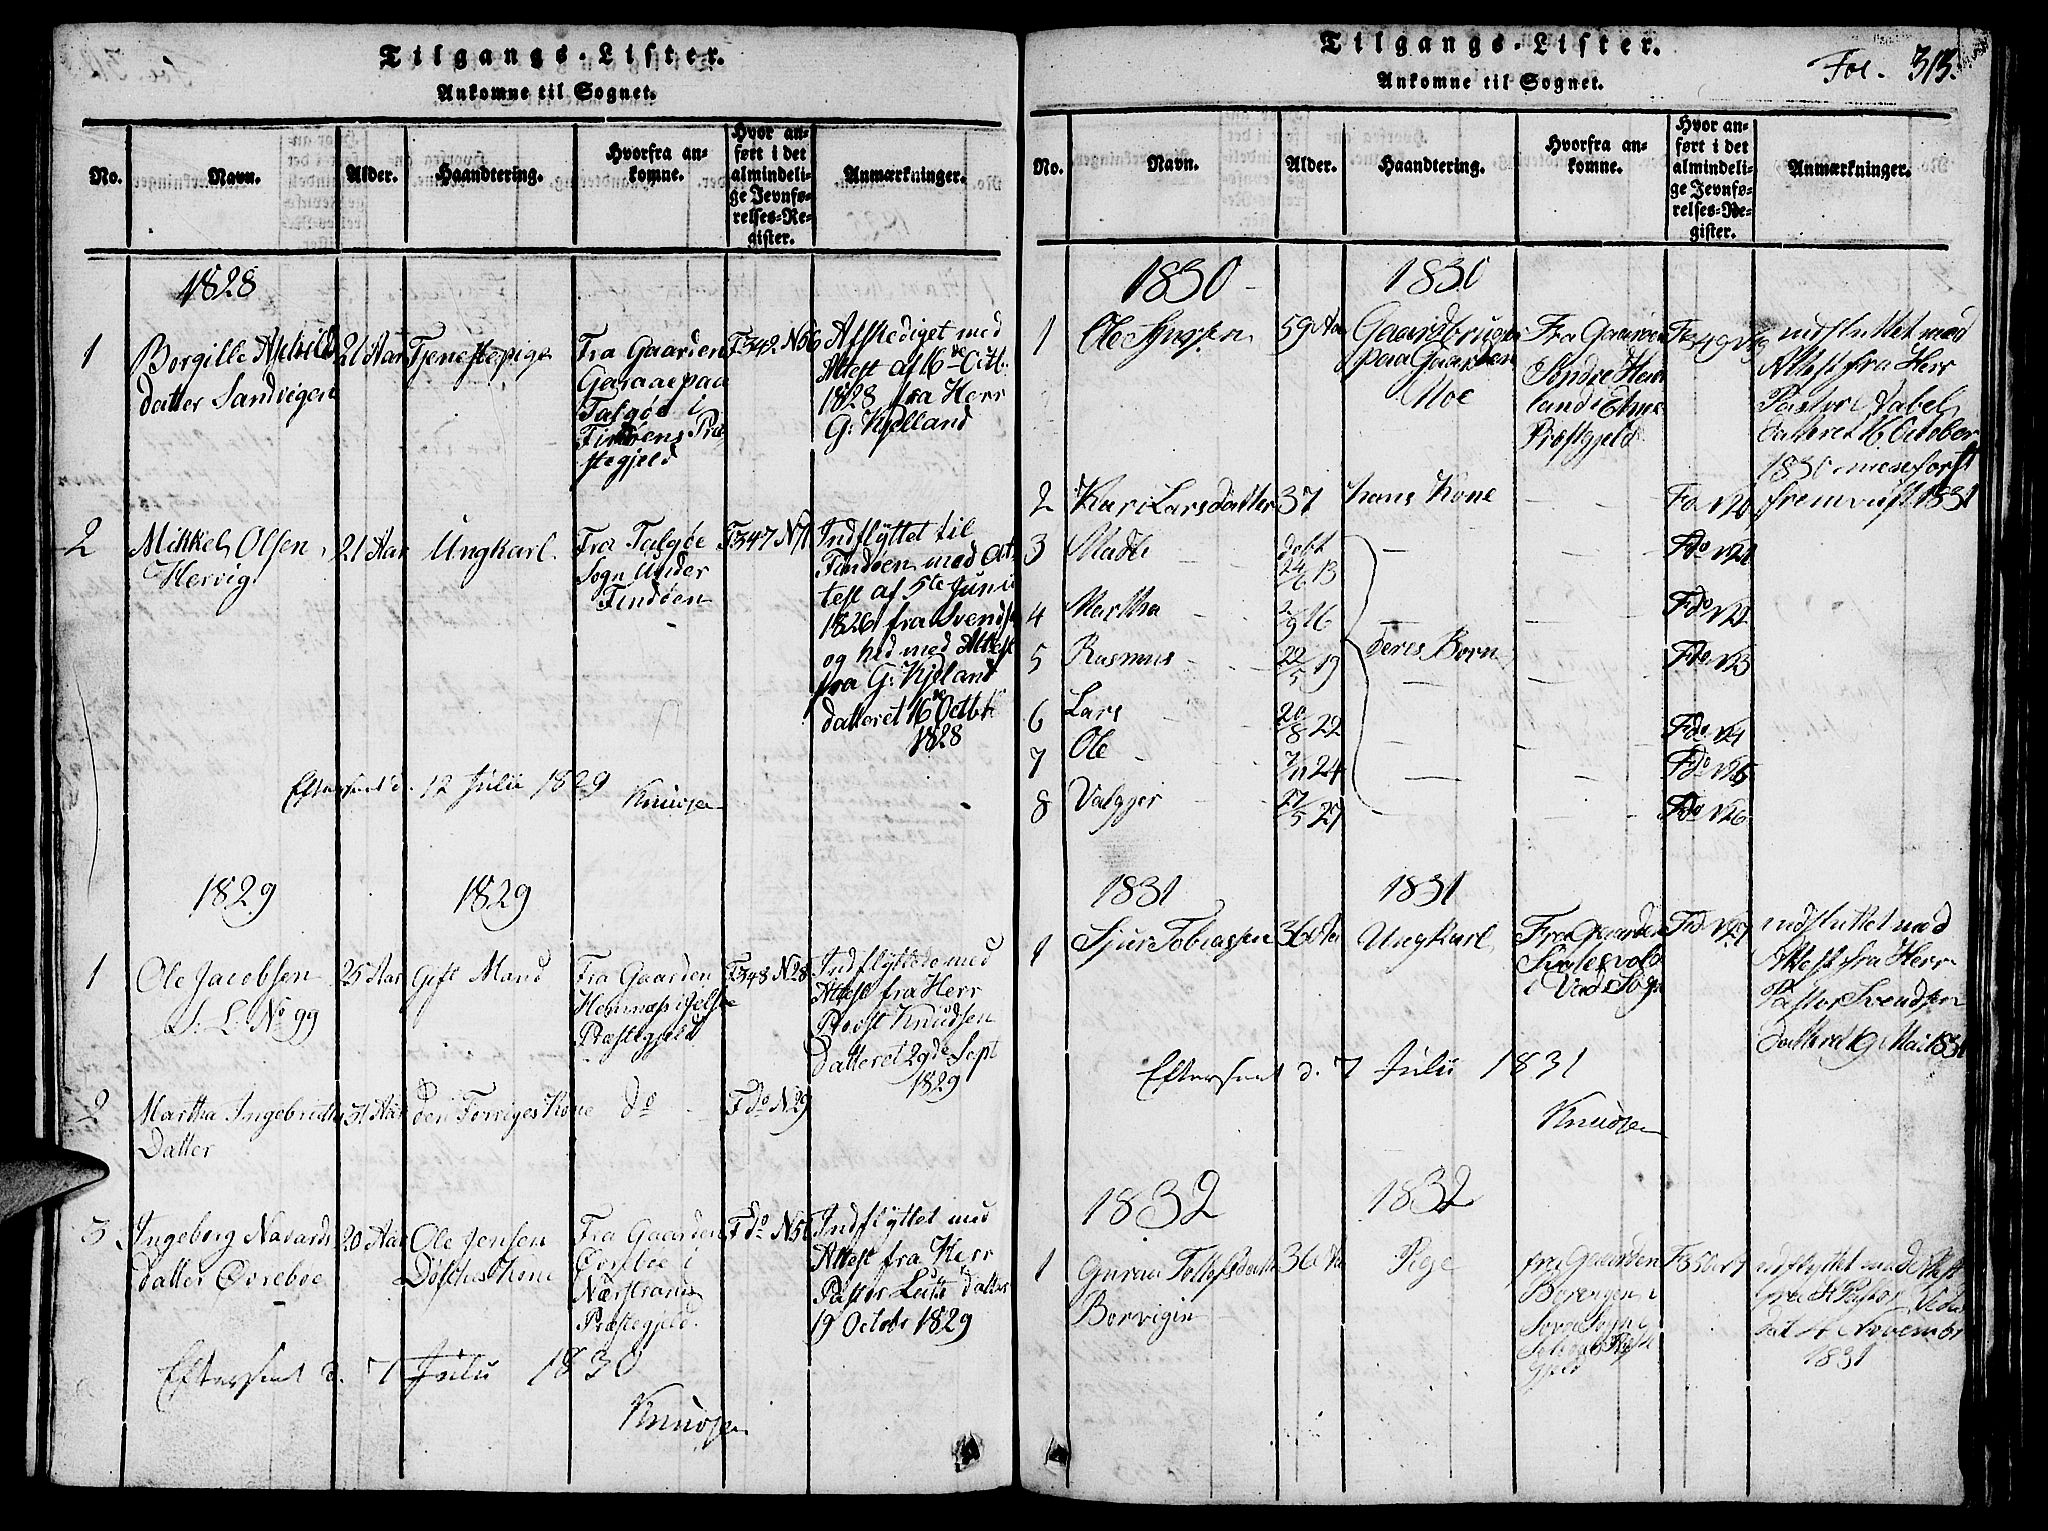 Tilgangs-Lister.
Ankomne til Sognet.
No.
Navn.
Alder.
Haandtering.
Hvorfra an-
komne.
Hvor an-
ført i det
almindeli-
ge Jevnfø-
relses-Re-
gister.
Anmærkninger.
1828
1
Borgille
datter Sandvigen
21 Aar
Tjenestepige
Fra Gaarden
Garaae paa
Talgøe i
Findøens Præ
stegjeld
F342 N56
Afskediget med
Attest af 16de Octb.
1828 fra Herr
G: Kjelland
2
Mikkel Olsen
Hervig
21 Aar
Ungkarl.
Fra Talgøe
Sogn under
Findøen
F347 N71
Indflyttet til
Findøen med At-
test af 5te Junii
1826 fra Svends
og hid med Attest
fra G: Kjeland
datteret 16de Octbr
1828
Efterseet d. 12 Julii 1829
Knudsen
1829
1829
1
Ole Jacobsen
S. L. No 99
25 Aar
Gift Mand
Fra Gaarden
Hemnæs i Jelse
Præstegjeld
F348 N28
Indflyttede med
Attest fra Herr
Provst Knudsen
datteret 29de Sept
1829
2
Martha Ingebrits
Datter
31 Aar
den Forriges Kone
do
Fdo N29
3
Ingeborg Navards
datter Øvreboe
20 Aar
Ole Jensen
Døschs Kone
Fra Gaarden
Øvreboe i
Nærstrands
Præstegjeld.
Fdo N51
Indflyttet med
Attest fra Herr
Pastor Lutz datter
19 Octobr 1829
Efterseet d. 7 Julii 1830
Knudsen
Tilgangs-Lister.
Ankomne til Sognet.
Fol. 313.
No.
Navn.
Alder.
Haandtering.
Hvorfra an-
komne.
Hvor an-
ført i det
almindeli-
ge Jevnfø-
relses-Re-
gister.
Anmærkninger.
1830
1830
1
Ole
59 Aar
Gaardbruger
paa Gaarden
Moe
Fra Gaarden
Søndre Hau
land i Etne
Præstgjeld
F349 N19
indfluttet med
Attest fra Herr
Pastor Abel
datteret 16 October
1830 men først
2
Kari Larsdatter
37
hans Kone
Fdo N20
fremviist 1831
3
Madle
døbt
24/6 13
Fdo N21
4
Martha
2/9 16
Fdo N22
5
Rasmus
22/5 19
deres Børn
Fdo N23
6
Lars
20/8 22
Fdo N24
7
Ole
7/11 24
Fdo N25
8
Valgjer
27/5 27
Fdo N26
1831
1831
1
Sjur Tobiassen
36 Aar
Ungkarl
Fra Gaarden
i Vads Sogn
Fdo N27
indfluttet med
Attest fra Herr
Pastor Svendsen
datteret 9 Mai 1831
Efterseet d. 7 Julii 1831
Knudsen
1832
1832
1
Guroe Tollefsdatter
Borvigin
36 Aar
Pige
fra Gaarden
i
Sogn
Præste
gjeld
indflyttet med Attest
fra H Pastor
dat 4 November
1831